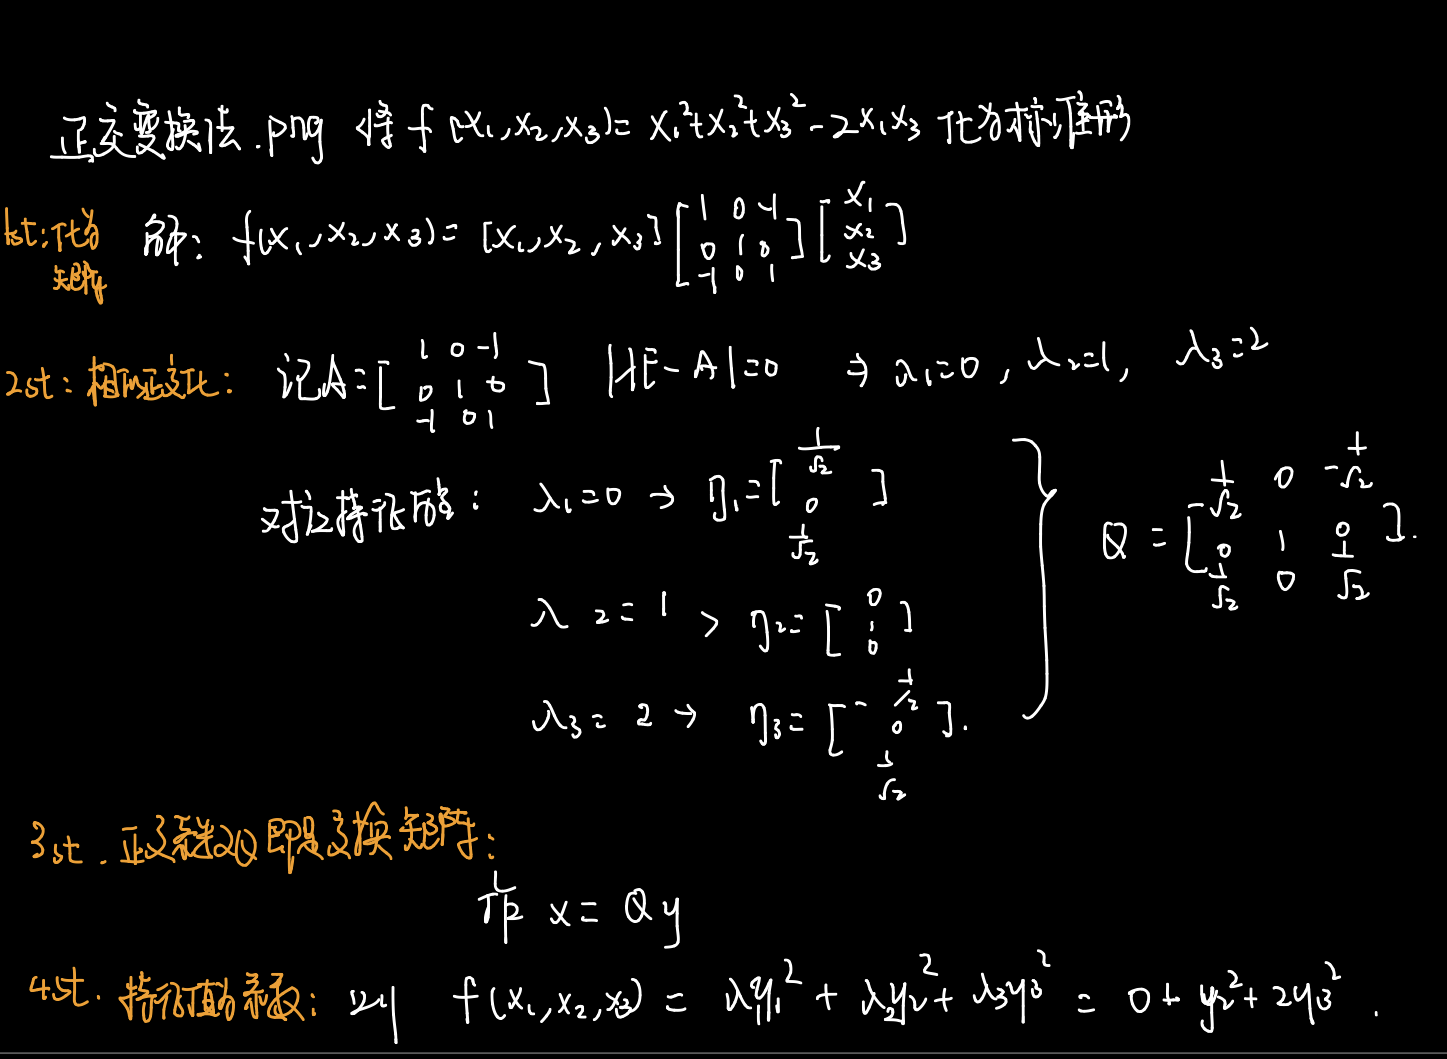 正交变换法.png 将 f(x₁,x₂,x₃)= x₁²+x₂²+x₃²-2x₁x₃ 化为标准形
1st:化为矩阵 解: f(x₁,x₂,x₃)= [x₁,x₂,x₃] [1 0 -1; 0 1 0; -1 0 1] [x₁; x₂; x₃]
2st:相似正交化: 记A=[1 0 -1; 0 1 0; -1 0 1] |λE-A|=0 → λ₁=0, λ₂=1, λ₃=2
对应特征向量: λ₁=0 → η₁=[1/√2; 0; 1/√2]
λ₂=1 > η₂=[0; 1; 0]
λ₃=2 → η₃=[-1/√2; 0; 1/√2].
Q=[1/√2 0 -1/√2; 0 1 0; 1/√2 0 1/√2].
3st. 正交 Q即是变换矩阵:
作 x=Qy
4st. 特征值为系数: 则 f(x₁,x₂,x₃)= λ₁y₁²+λ₂y₂²+λ₃y₃² = 0+y₂²+2y₃².